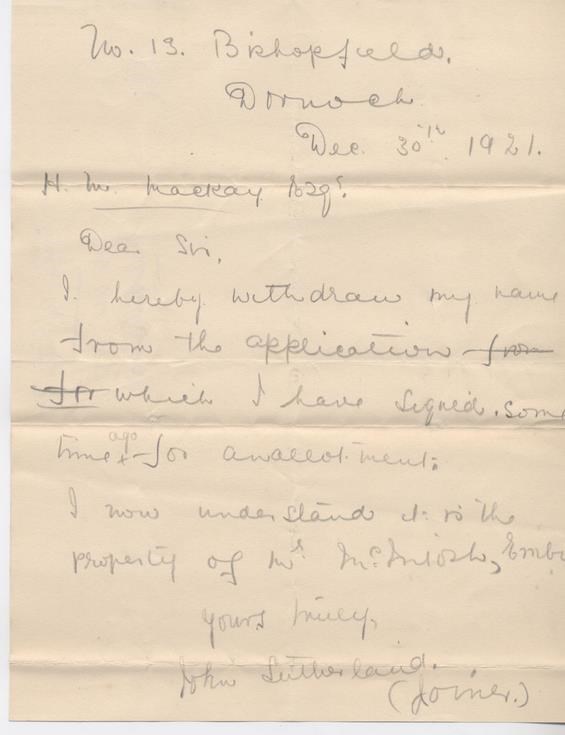 No. 13. Bishopfield.
Dornoch
Dec. 30th 1921.
H. M. Mackay Esqr.
Dear Sir,
I hereby withdraw my name
from the application from
for which I have Signed. some
time ago for an allotment:
I now understand it is the
property of Mr McIntosh, Embo
yours truly,
John Sutherland.
(Joiner.)